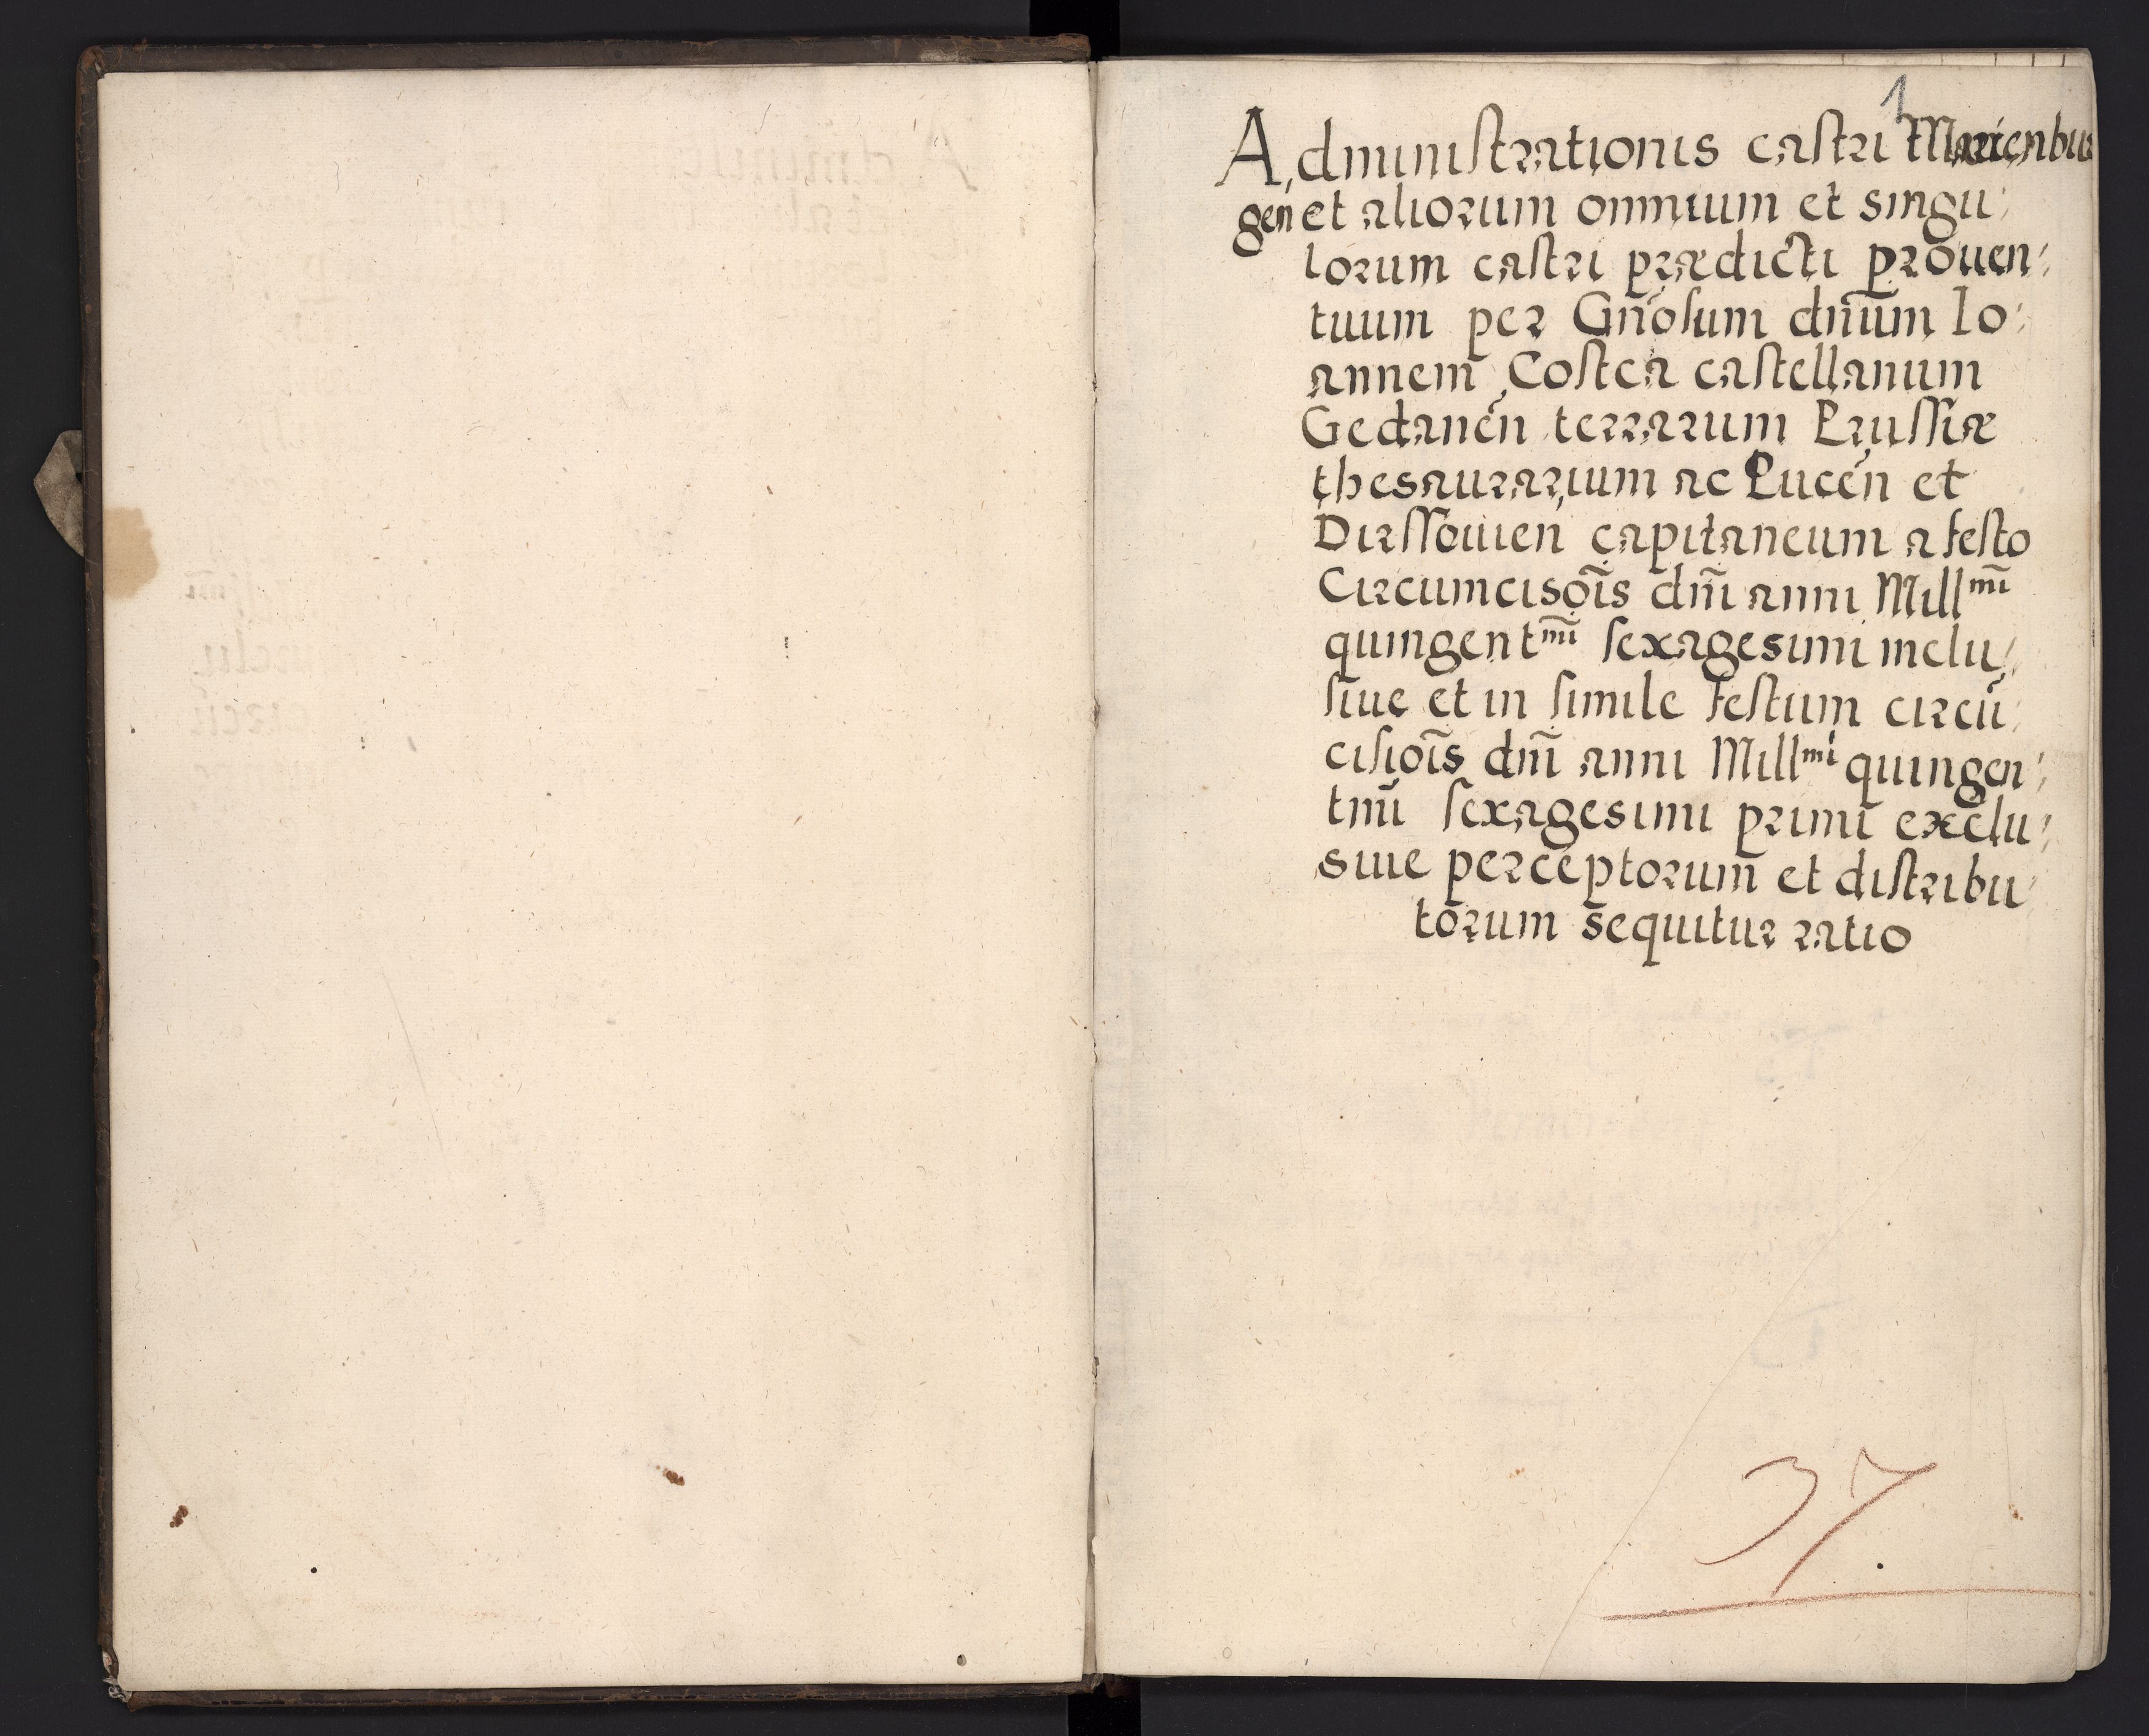 1
Administrationis castri Marienbur
gen et aliorum omnium et singu:
lorum castri prædicti prouen:
tuum per Gn̄osum dn̄um Io:
annem Costca castellanum
Gedanen̄ terrarum Prussiæ
thesaurarium ac Pucen̄ et
Dirssouien capitaneum a festo
Circumcisoīs dn̄i anni Millmī
quingentmī sexagesimi inclu:
siue et in simile festum circū:
cisioīs dn̄i anni Millmi quingen:
tmī sexagesimi primi exclu:
siue perceptorum et distribu:
torum sequitur ratio
37